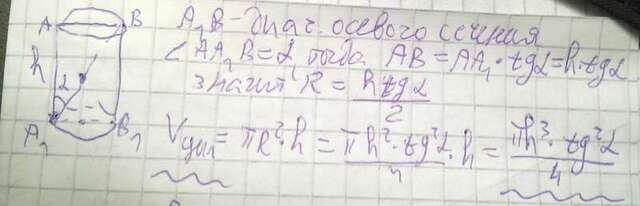 A B
A₁B - диаг. осевого сечения
∠AA₁B = α, тогда AB = AA₁ · tgα = h · tgα
h
значит R = htgα/2
α
A₁ B₁
Vцил = πR²·h = πh²·tg²α/4 · h = πh³·tg²α/4